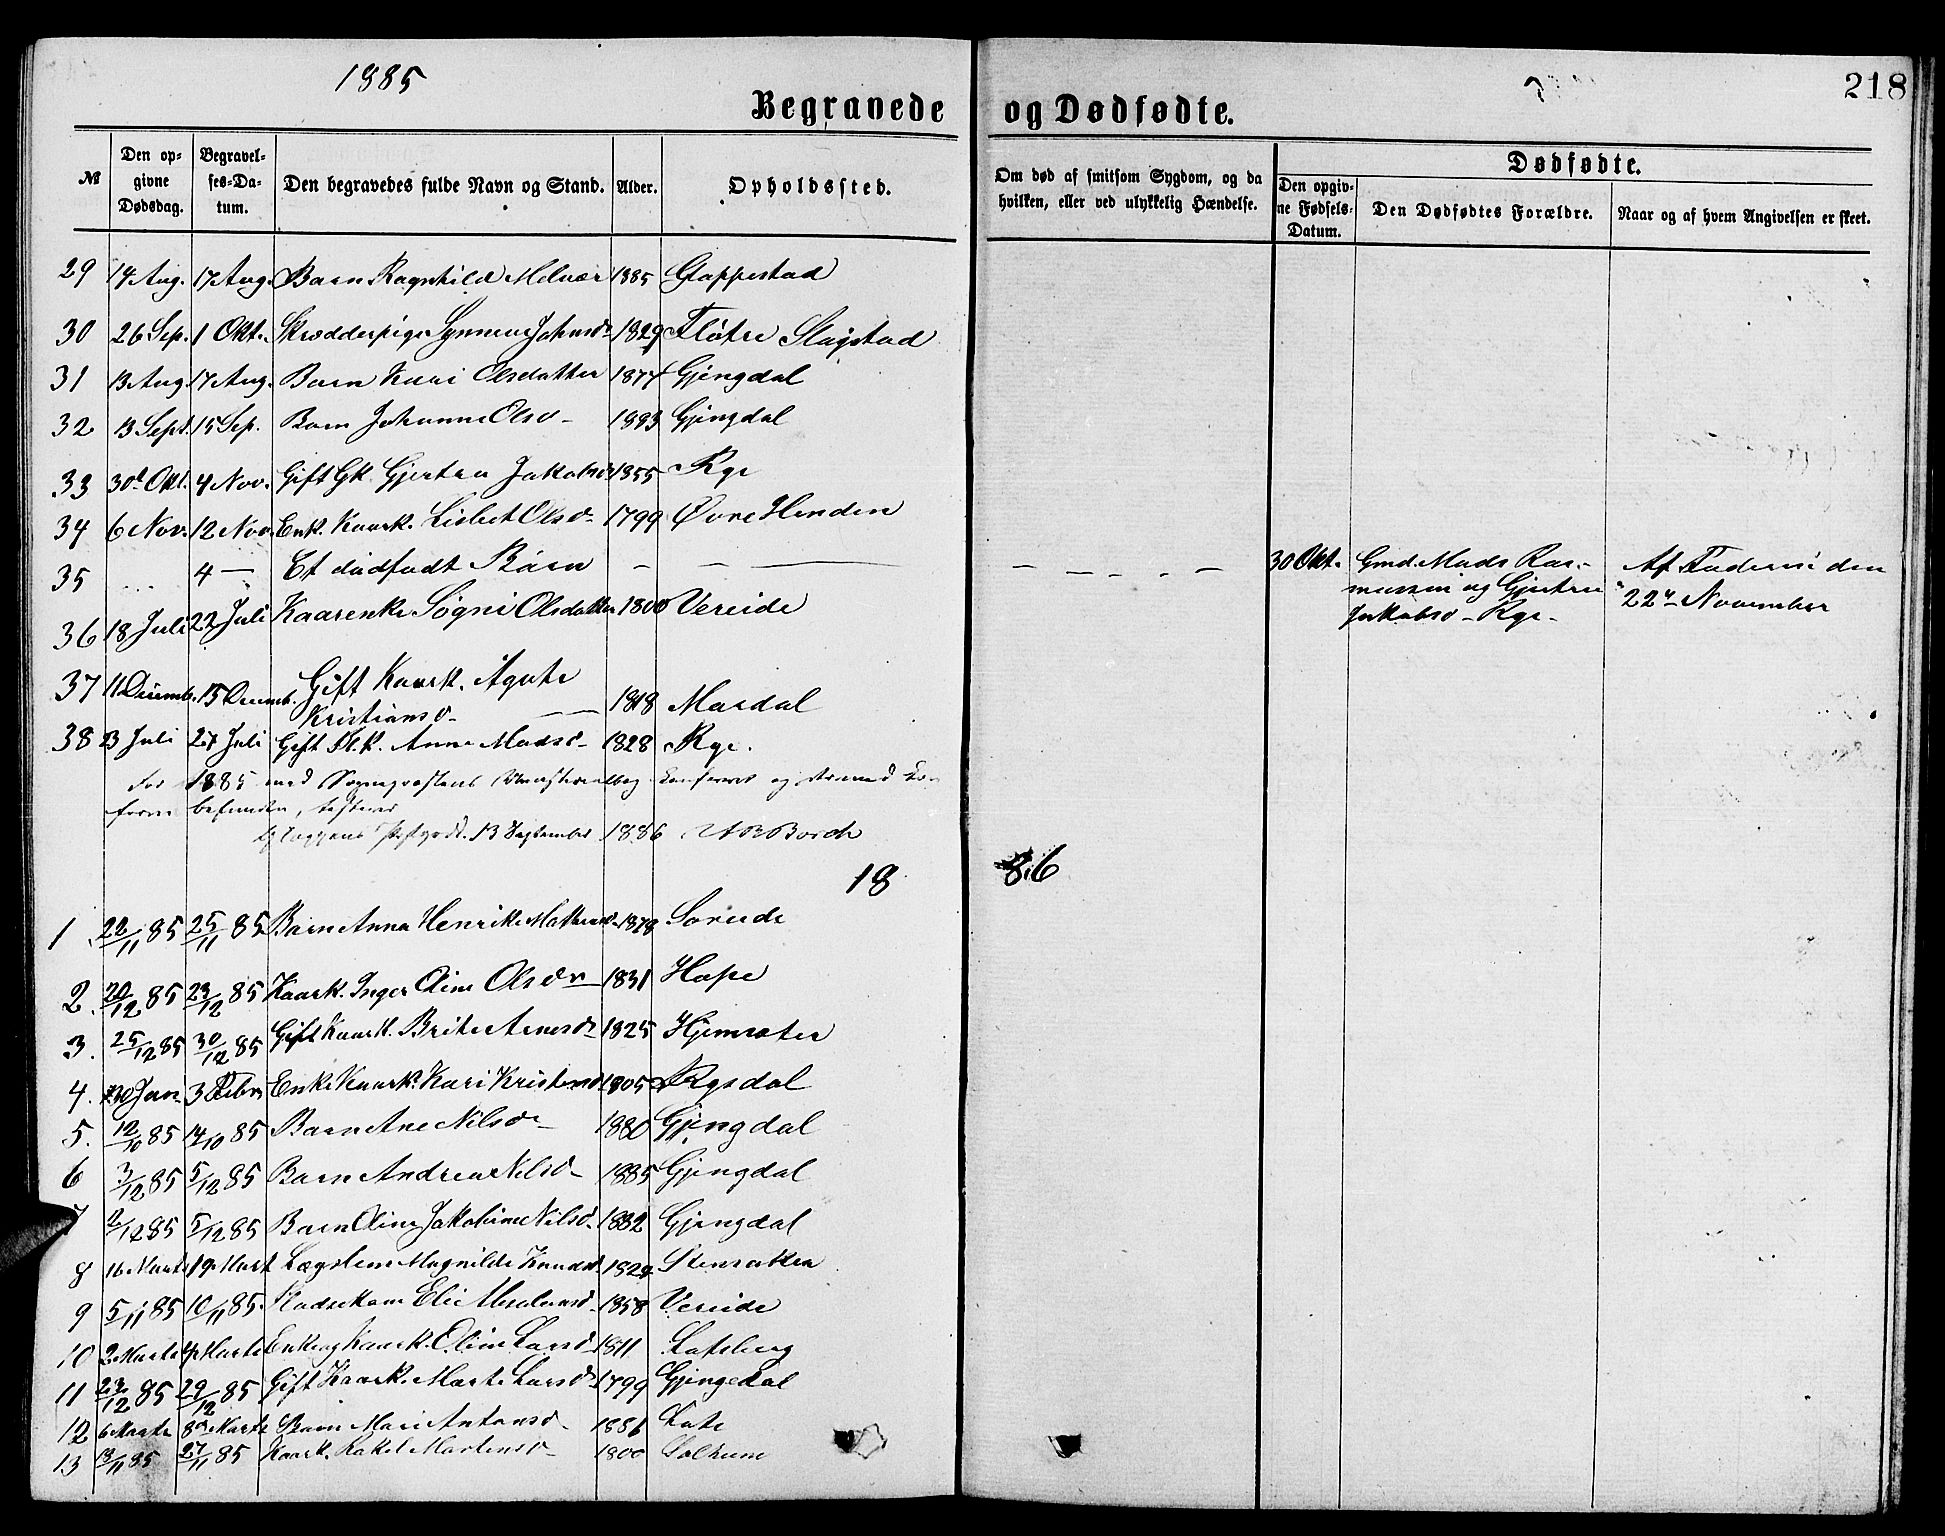 1885
218
Begravede og Dødfødte.
№
Den opgivne Dødsdag.
Begravelses-Datum.
Den begravedes fulde Navn og Stand.
Alder.
Opholdssted.
Om død af smitsom Sygdom, og da hvilken, eller ved ulykkelig Hændelse.
Dødfødte.
Den opgivne Fødsels-Datum.
Den Dødfødtes Forældre.
Naar og af hvem Angivelsen er skeet.
29 14 Aug. 17 Aug. Barn Ragnhild Melvær 1885 Gloppestad
30 26 Sep. 1 Okt. Skrædderpige Synneve Johnsd- 1829 Fløtre Slagstad
31 13 Aug 17 Aug. Barn Kari Olsdatter 1874 Gjengdal
32 13 Sept. 15 Sep. Barn Johanne Olsd- 1883 Gjengdal
33 30 Okt. 4 Nov. Gift Gk. Gjertru Jakobsd 1855 Ryc
34 6 Nov. 12 Nov. Enk. Kaark. Lisbet Olsd- 1799 Øvre Henden
35 4 — Et dødfødt Barn — — — 30 Okt. Gmd. Mads Ras-
mussen og Gjertru
Jakobsd - Ryc -
Af Faderen den
22 November
36 18 Juli 22 Juli Kaarenke Søgni Olsdatter 1800 Vereide
37 11 Decemb. 15 Decemb. Gift Kaark. Agate
Kristiansd- 1818 Mardal
38 23 Juli 27 Juli Gift Anne Madsd- 1828 Ryc.
For 1885 med Sogneprestens Ministerialbog konfereret og dermed kon
form befunden, testerer
Gloppens Prestgard. 13 September 1886
1886
1 22/11 85 25/11 85 Barn Anna Henrike 1878 Soreide
2. 20/12 85 23/12 85 Kaark. Inger Oline Olsdr 1831 Hope
3. 25/12 85 30/12 85 Gift Kaark. Brite Arnesd 1825 Hjemsæter
4. 30 Jan 3 Febr Enke Kaark. Kari Kristensd 1805 Rysdal
5. 12/10 85 14/10 85 Barn Ane Nilsd- 1880 Gjengdal
6 3/12 85 5/12 85 Barn Andrea Nilsd- 1885 Gjengdal
7 2/12 85 5/12 85 Barn Oline Jakobine Nilsd- 1882 Gjengdal
8 16 Marts 19 Mart Lægslem Magnilde Knudsd- 1824
9 5/11 85 10/11 85. Eli 1858 Vereide
10 2 Marts Marts Enke og Kaark. Oline Larsd- 1811
11 23/12 85 29/12 85 Gift Kaark. Marte Larsd- 1799 Gjengedal
12 6 Marts 8 Marts Barn Mari Antonsd- 1886 Lote
13 13/11 85 27/11 85 Kaark. Rakel Martensd- 1800 Solheim